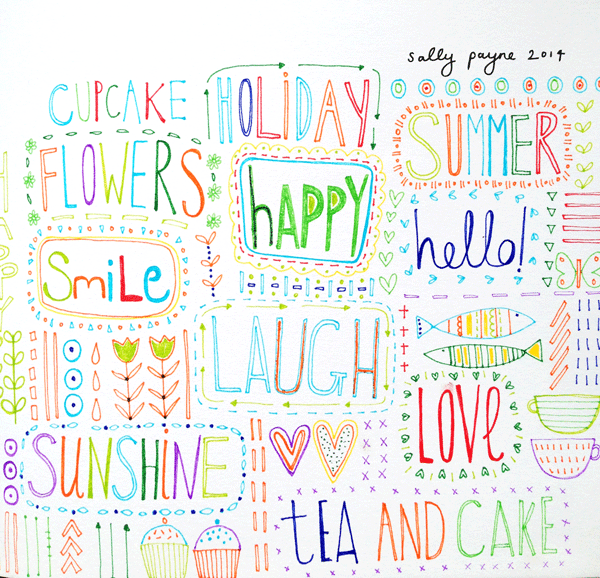 sally payne 2014
CUPCAKE
HOLIDAY
SUMMER
FLOWERS
hAPPY
hello!
SmiLe
LAUGH
LOVe
SUNShiNE
tEA AND CAKE